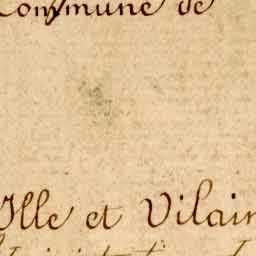 Commune de
Ille et Vilain